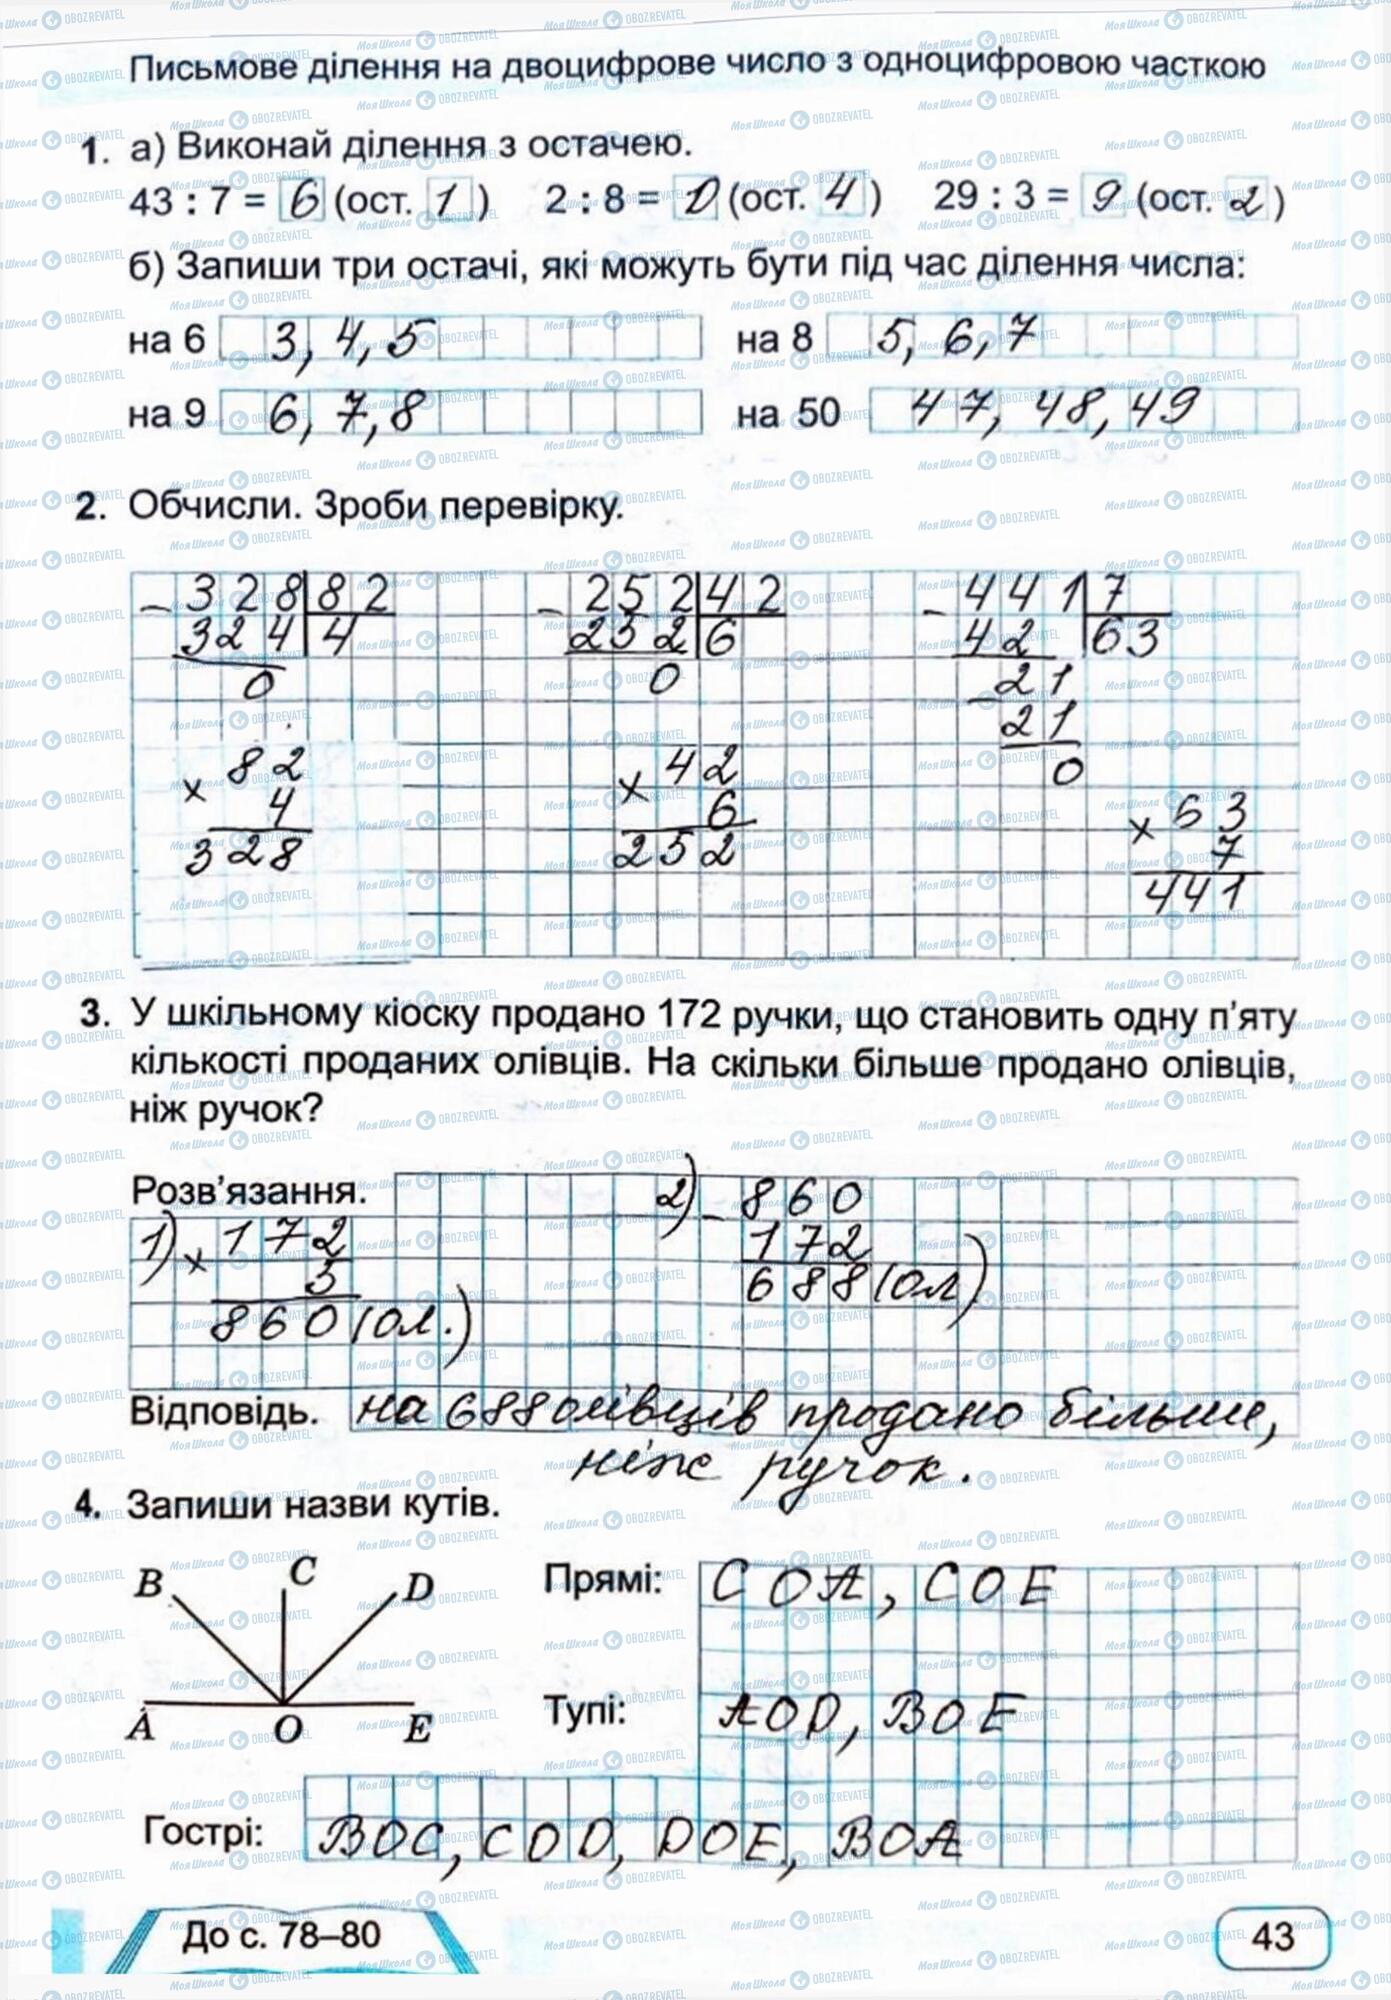 Письмове ділення на двоцифрове число з одноцифровою часткою
1. а) Виконай ділення з остачею.
43 : 7 = 6 (ост. 1 ) 2 : 8 = 0 (ост. 4 ) 29 : 3 = 9 (ост. 2 )
б) Запиши три остачі, які можуть бути під час ділення числа:
на 6 3, 4, 5 на 8 5, 6, 7
на 9 6, 7, 8 на 50 47, 48, 49
2. Обчисли. Зроби перевірку.
– 328 82 – 252 42 – 441 7
324 4 252 6 42 63
0 0 – 21
21
0
× 82 × 42 × 63
4 6 7
328 252 441
3. У шкільному кіоску продано 172 ручки, що становить одну п'яту
кількості проданих олівців. На скільки більше продано олівців,
ніж ручок?
Розв'язання.
1) × 172 2) – 860
5 172
860 (ол.) 688 (ол)
Відповідь. на 688 олівців продано більше,
ніж ручок.
4. Запиши назви кутів.
B C D
A O E
Прямі: COA, COE
Тупі: AOD, BOE
Гострі: BOC, COD, DOE, BOA
До с. 78–80
43
Моя Школа OBOZREVATEL